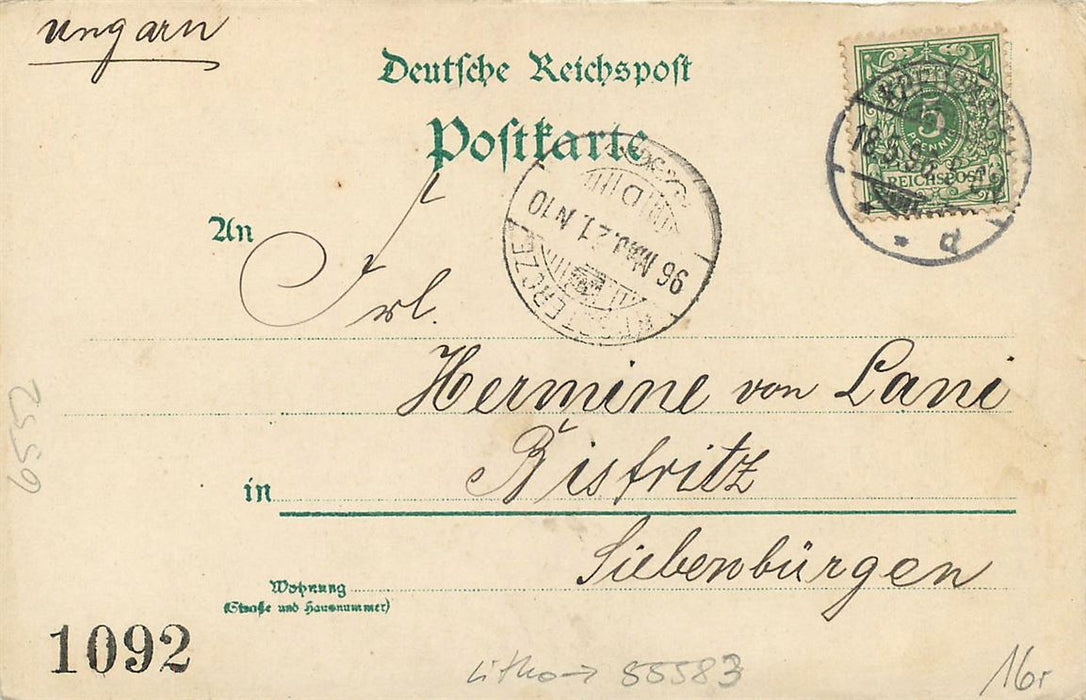 Ungarn
Deutsche Reichspost
Postkarte
5
PFENNIG
REICHSPOST
18.5.96
96 MAJ. 21 N 10
An
Frl.
Hermine von Lani
in Bistritz
Siebenbürgen
Wohnung
(Straße und Hausnummer)
1092
Litho → 55583
16r
2559